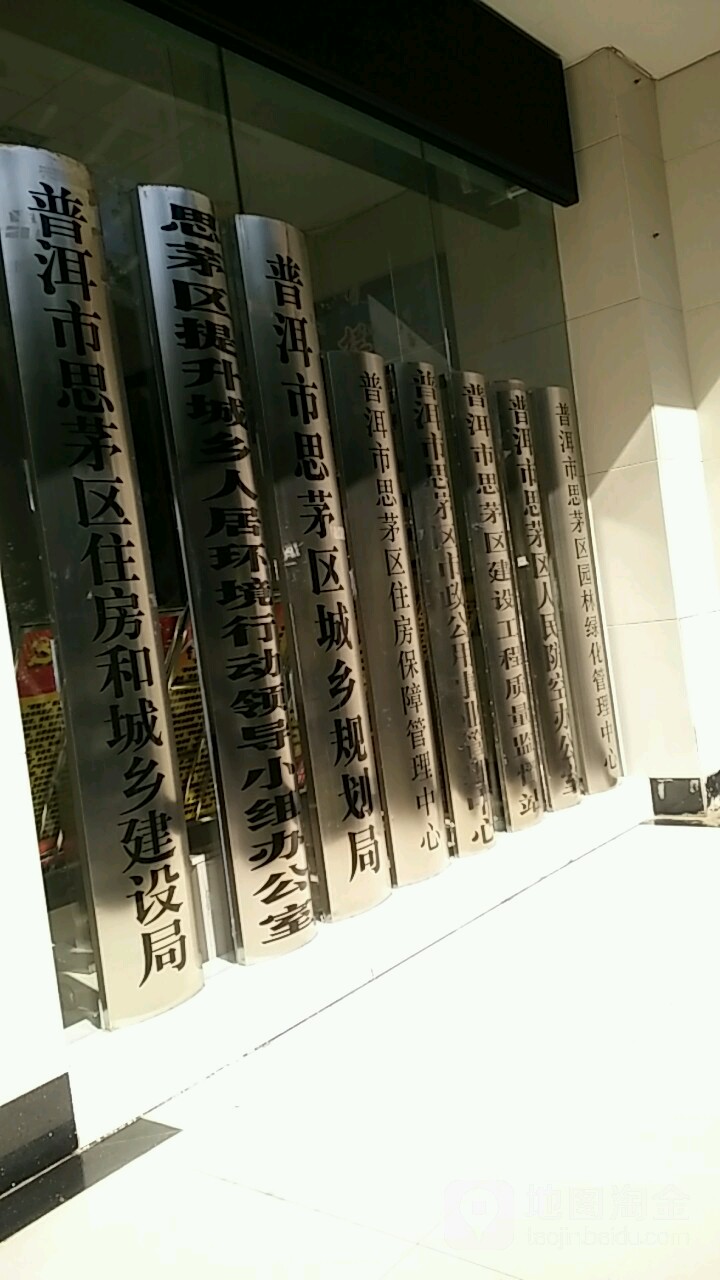 普洱市思茅区住房和城乡建设局
思茅区提升城乡人居环境行动领导小组办公室
普洱市思茅区城乡规划局
普洱市思茅区住房保障管理中心
普洱市思茅区市政公用事业管理中心
普洱市思茅区建设工程质量监督站
普洱市思茅区人民防空办公室
普洱市思茅区园林绿化管理中心
地图淘金
taojinbaidu.com